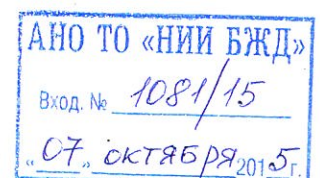 АНО ТО «НИИ БЖД»
Вход. № 1081/15
„ 07 „ октября 2015 г.